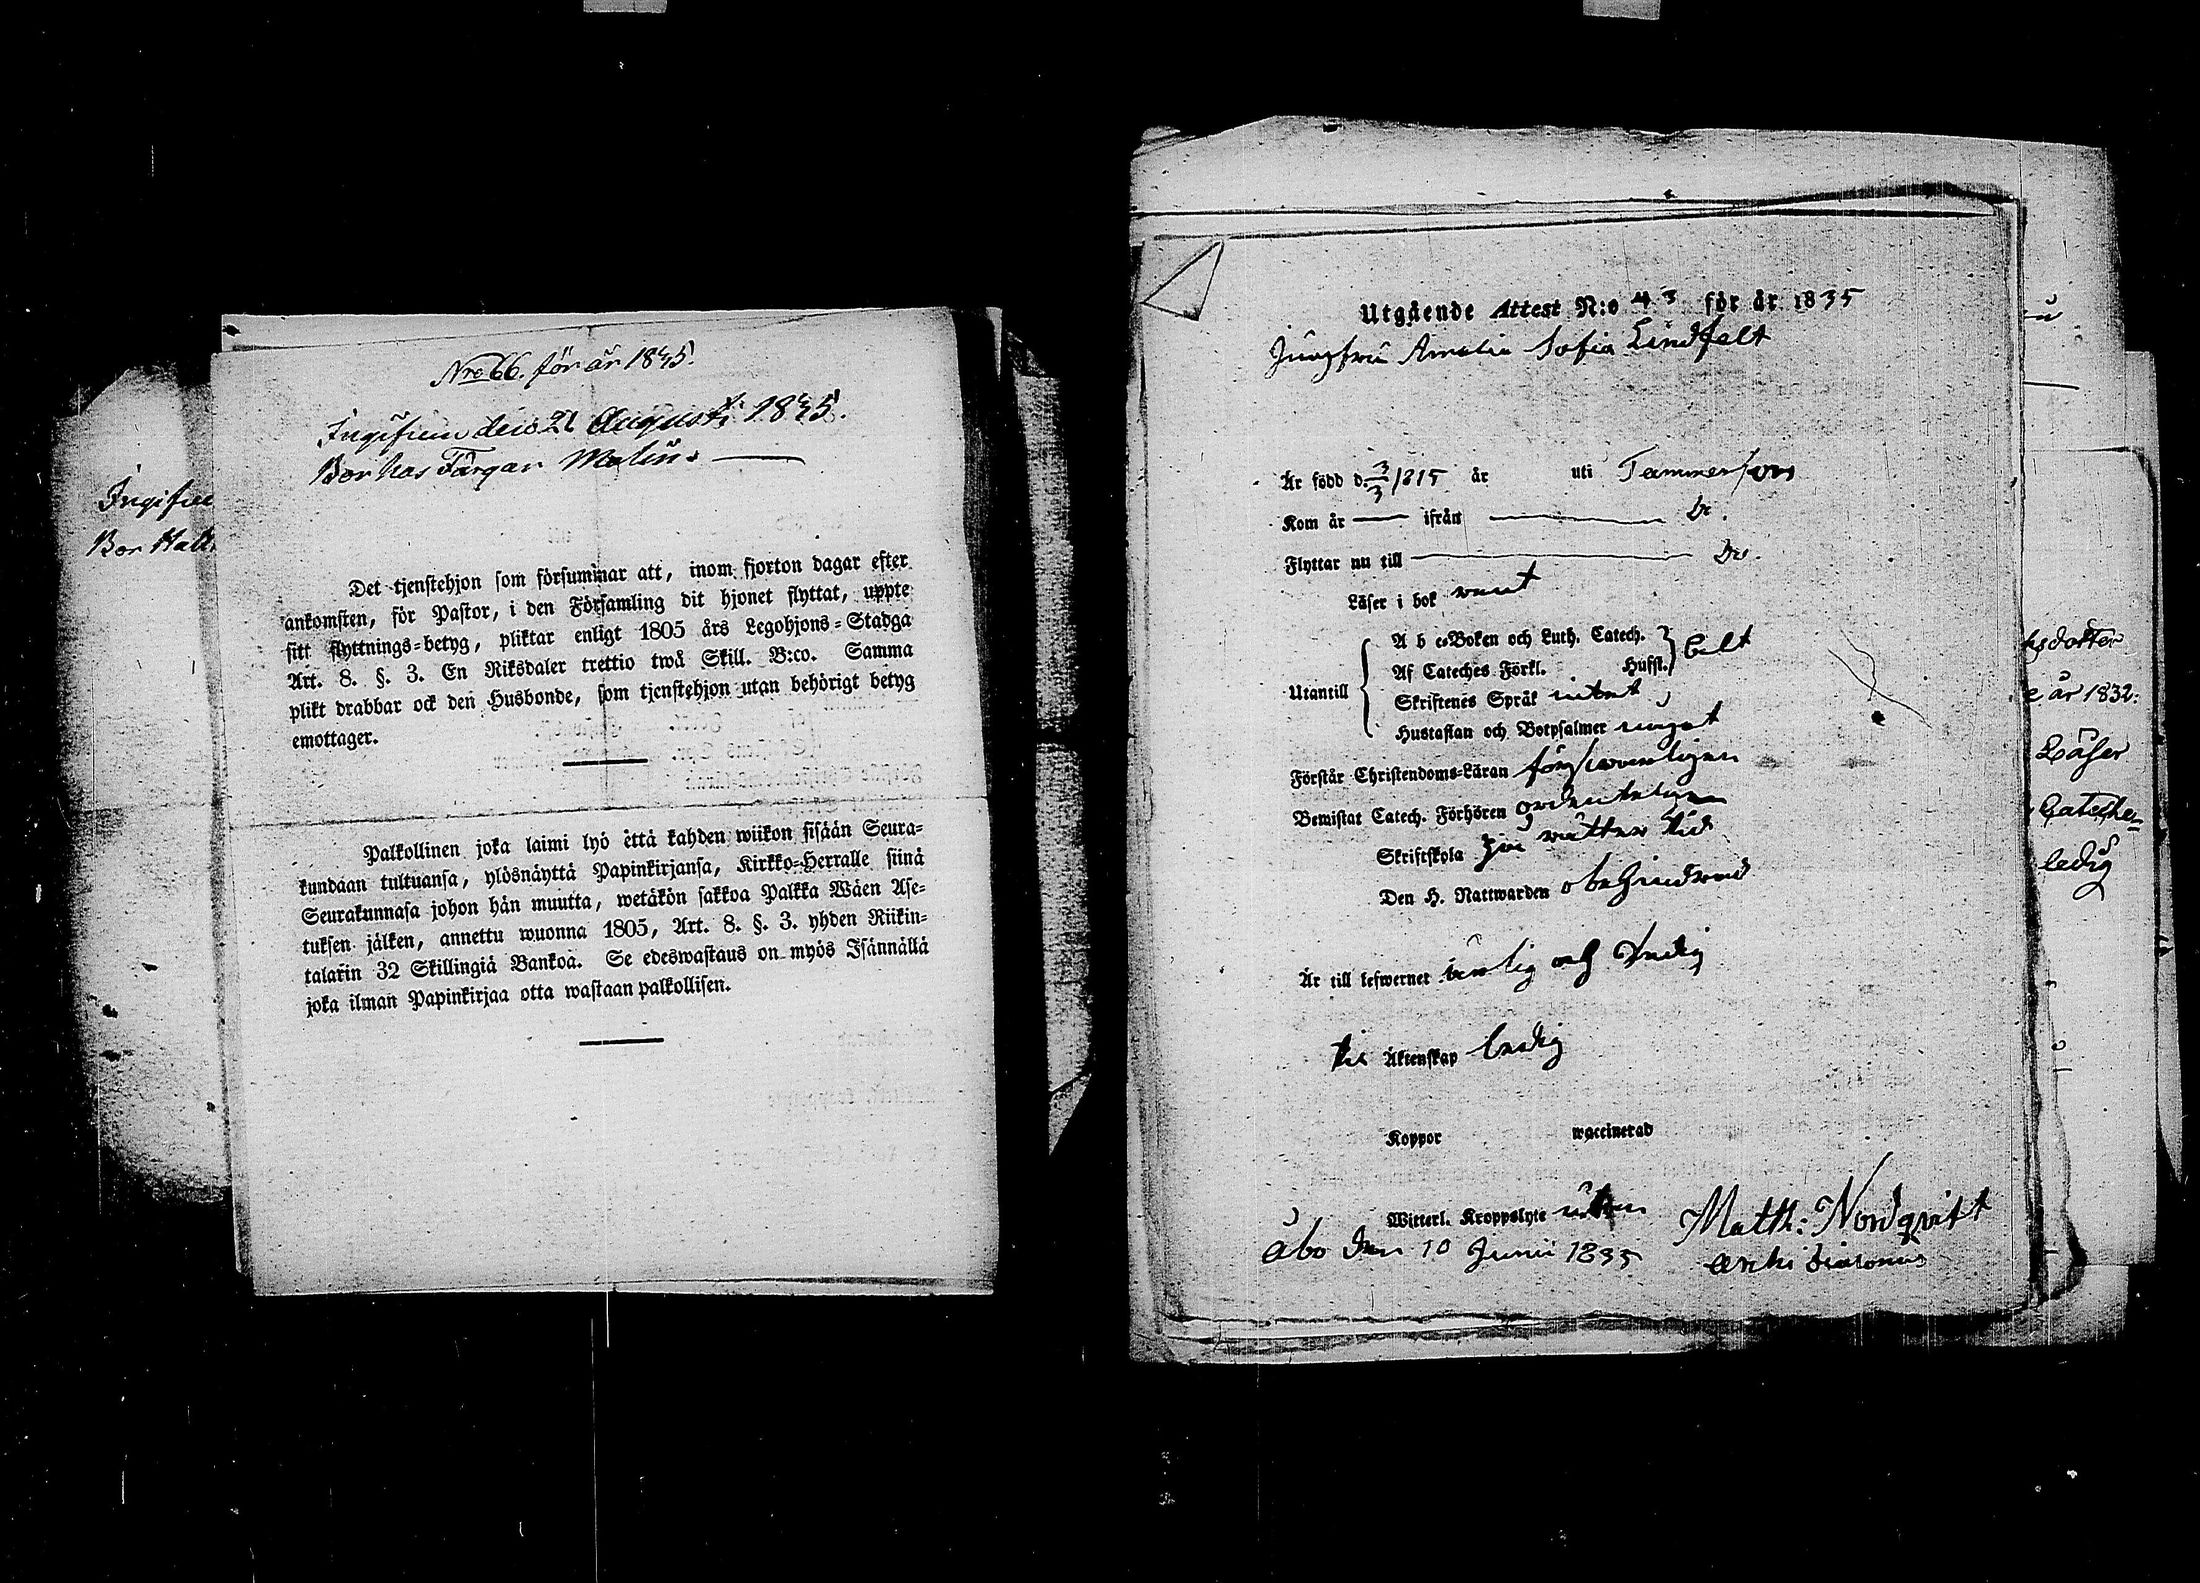 Nro 66. för år 1835.
Ingifven den 21 Augusti 1835.
Bor hos Färgar Molin.
Ingifve
Bor Hall
Det tjenstehjon som försummar att, inom fjorton dagar efter
ankomsten, för Pastor, i den Församling dit hjonet flyttat, uppte
sitt flyttnings=betyg, pliktar enligt 1805 års Legohjons=Stadga
Art. 8. §. 3. En Riksdaler trettio twå Skill. B:co. Samma
plikt drabbar ock den Husbonde, som tjenstehjon utan behörigt betyg
emottager.
Palkollinen joka laimi lyö että kahden wiikon sisään Seura=
kundaan tultuansa, ylösnäyttä Papinkirjansa, Kirkko=Herralle siinä
Seurakunnasa johon hän muutta, wetäkön sakkoa Palkka Wäen Ase=
tuksen jälken, annettu wuonna 1805, Art. 8. §. 3. yhden Riikin=
talarin 32 Skillingiä Bankoa. Se edeswastaus on myös Isännällä
joka ilman Papinkirjaa otta wastaan palkollisen.
Utgående Attest N:o 43 för år 1835
Jungfru Amalia Sofia Lindfelt
Är född d. 3/3 1815 år uti Tammerfors
Kom år — ifrån —
Flyttar nu till —
Läser i bok rent
Utantill
A b c=Boken och Luth. Catech.
Af Cateches Förkl. Husfl. helt
Skriftenes Språk intet
Hustaflan och Botpsalmer något
Förstår Christendoms=Läran försvarligen
Bewistat Catech. Förhören ordenteligen
Skriftskola på rätter tid
Den H. Nattwarden obehindrad
Är till lefwernet ärlig och
till Äktenskap ledig
Koppor waccinerad
Witterl. Kroppslyte utan
Åbo den 10 Junii 1835
Matth: Nordqvist
Archi Diaconus
sdotter
e år 1832.
Läser
Cateche=
ledig